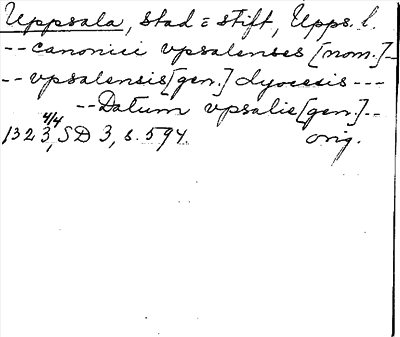 Uppsala, stad o stift, Upps. l.
-- canonici vpsalenses [nom.] --
-- vpsalensis [gen.] dyocesis ---
-- Datum vpsalie [gen.] --
1323 4/4, SD 3, s. 594. orig.